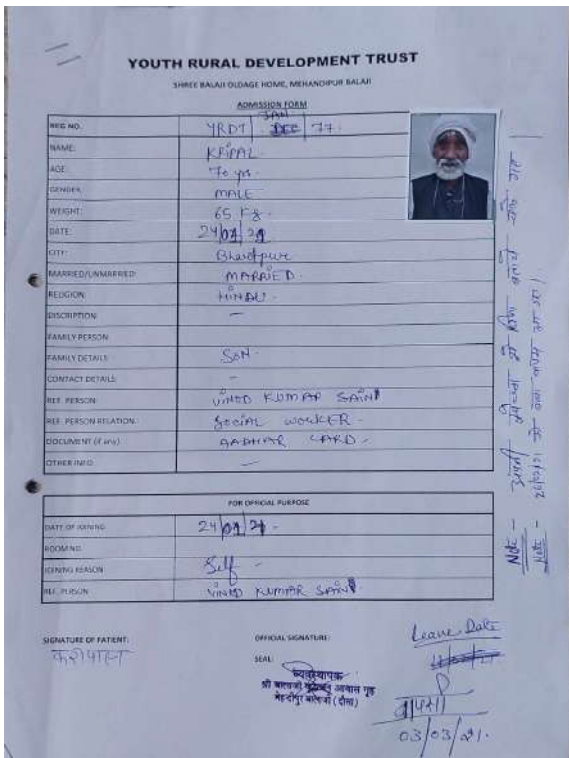 YOUTH RURAL DEVELOPMENT TRUST
SHREE BALAJI OLDAGE HOME, MEHANDIPUR BALAJI
ADMISSION FORM
JAN
REG NO. YRDT DEC 77.
NAME: KRIPAL
AGE: 70 yrs.
GENDER: MALE
WEIGHT: 65 Kg.
DATE: 24/01/21
CITY: Bharatpur
MARRIED/UNMARRIED: MARRIED.
RELIGION: HINDU.
DISCRIPTION: —
FAMILY PERSON
FAMILY DETAILS SON.
CONTACT DETAILS: —
REF. PERSON: VINOD KUMAR SAINI
REF. PERSON RELATION.: SOCIAL WORKER -
DOCUMENT (if any) AADHAR CARD -
OTHER INFO —
FOR OFFICIAL PURPOSE
DATE OF JOINING 24/01/21 -
ROOM NO.
JOINING REASON Self -
REF. PERSON VINOD KUMAR SAINI
SIGNATURE OF PATIENT:
OFFICIAL SIGNATURE:
SEAL:
व्यवस्थापक
श्री बालाजी आवास गृह
मेहन्दीपुर बालाजी (दौसा)
Leave Date
वापसी
03/03/21.
Note -
Note -